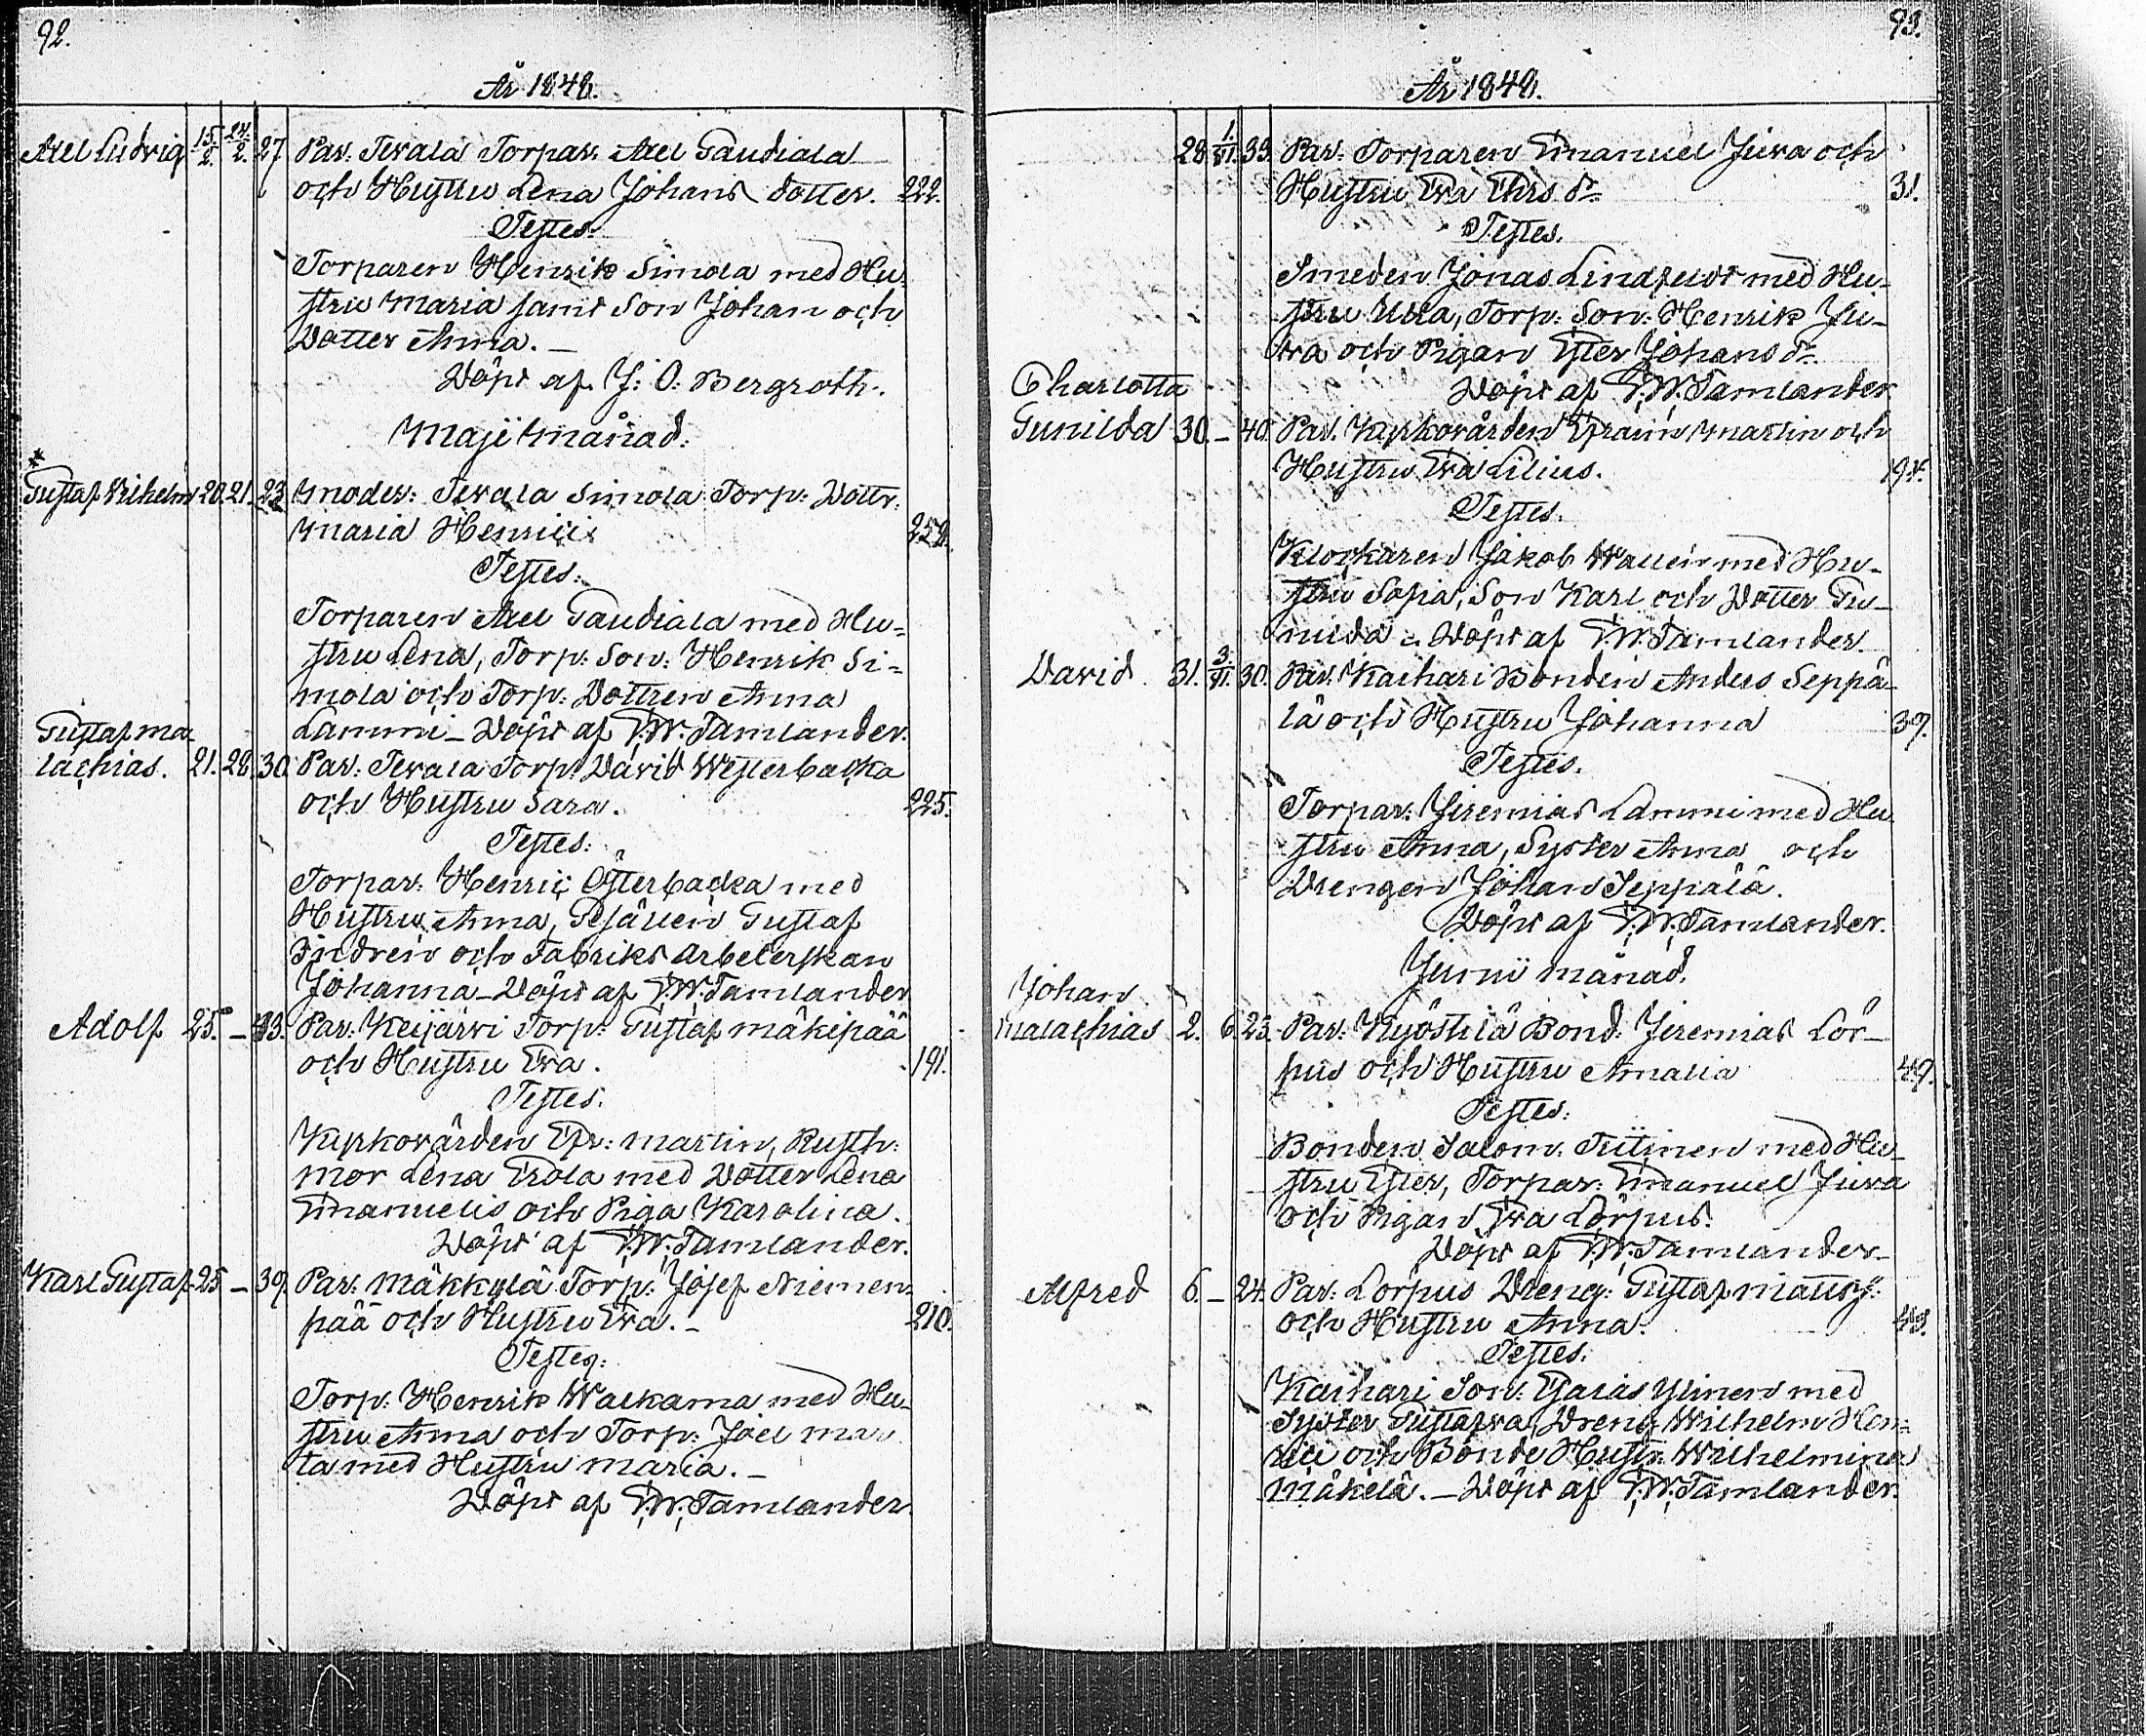 92.
År 1848.
Axel Ludvig 15/2. 24/2. 27 Par. Terala Torpar. Axel Gaudiala
och Hustru Lena Johans dotter. 222.
Testes.
Torparen Henrik Simola med Hu-
stru Maria samt Son Johan och
Dotter Anna. —
Döpt af J: O: Bergroth.
Maji Månad.
Gustaf Vilhelm 20. 21. 23 Moder: Terala Simola Torp: Dottr.
Maria Henrici
Testes.
Torparen Axel Gaudiala med Hu-
stru Lena, Torp: Son: Henrik Si-
mola och Torp: Dottren Anna
Lammi — Döpt af F.W. Tamlander.
Gustaf Ma-
lachias. 21. 28. 30. Par: Terala Torp: David Westerbacka
och Hustru Sara. 225.
Testes:
Torpar: Henric Österbacka med
Hustru Anna, Gesällen Gustaf
och Fabriks Arbeterskan
Johanna — Döpt af F.W. Tamlander
Adolf 25. — 33. Par: Keijärvi Torp: Gustaf Mäkipää
och Hustru Eva. 191.
Testes.
Kyrkovärden Efr: Martin, Rusth:
Mor Lena Erola med Dotter Lena
Emanuelis och Piga Karolina.
Döpt af F.W. Tamlander.
Karl Gustaf 25 — 39. Par. Mäkkylä Torp: Josef Niemen-
pää och Hustru Eva. — 210.
Testes:
Torp: Henrik Walkama med Hu-
stru Anna och Torp: Joel Mar-
ta med Hustru Maria. —
Döpt af F.W. Tamlander
93.
År 1848.
28 1./VI. 33. Par: Torparen Emanuel Juva och
Hustru Eva Ehrs dr. 31.
Testes.
Smeden Jonas Lindfelt med Hu-
stru Ulla, Torp: Son: Henrik Ju-
va och Pigan Ester Johans dr.
Döpt af F.W. Tamlander
Charlotta
Gunilda 30. — 40. Par. Kyrkovärden Efraim Martin och
Hustru Eva Lilius. 194.
Testes.
Klockaren Jakob Wallein med Hu-
stru Sofia, Son Karl och Dotter Gu-
nilda — Döpt af F.W. Tamlander.
David 31. 3./VI. 30. Par. Kaihari Bonden Anders Seppä-
lä och Hustru Johanna 37.
Testes.
Torpar: Jeremias Lammi med Hu-
stru Anna, Syster Anna och
Drengen Johan Seppälä.
Döpt af F.W. Tamlander.
Junii månad.
Johan
Malachias 2. 6. 23. Par: Kyöstilä Bond: Jeremias Lör-
pus och Hustru Amalia 47.
Testes:
Bonden Salom. Tiitinen med Hu-
stru Ester, Torpar: Emanuel Juva
och Pigan Eva Lörpus.
Döpt af F.W. Tamlander —
Alfred 6. — 24. Par: Lörpus Dreng: Gustaf Matts:
och Hustru Anna.
Testes.
Kaihari Son: Esaias Ylinen med
Syster Gustafva, Dreng Wilhelm Hen-
rici och Bonde Hustr. Wilhelmina
Mäkelä. — Döpt af F.W. Tamlander.